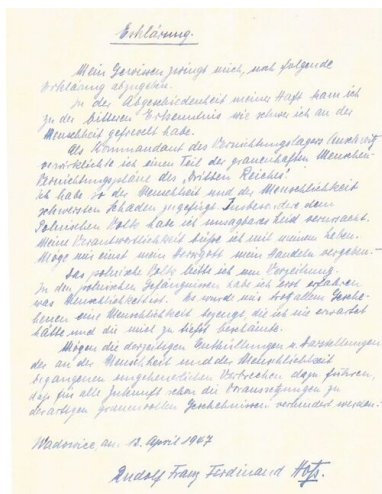 Erklärung.
Mein Gewissen zwingt mich, noch folgende
Erklärung abzugeben.
In der Abgeschiedenheit meiner Haft kam ich
zu der bitteren Erkenntnis wie schwer ich an der
Menschheit gefrevelt habe.
Als Kommandant des Vernichtungslagers Auschwitz
verwirklichte ich einen Teil der grauenhaften Menschen-
Vernichtungspläne des „Dritten Reiches".
Ich habe so der Menschheit und der Menschlichkeit
schwersten Schaden zugefügt. Insbes. dem
Polnischen Volk habe ich unsagbares Leid verursacht.
Meine Verantwortlichkeit büsse ich mit meinem Leben.
Möge mir einst mein Herrgott mein Handeln vergeben.
Das polnische Volk bitte ich um Verzeihung.
In den polnischen Gefängnissen habe ich erst erfahren
was Menschlichkeit ist. Es wurde mir trotz allem Gesche-
henen eine Menschlichkeit bezeugt, die ich nie erwartet
hätte und die mich zu tiefst beschämte.
Mögen die derzeitigen Enthüllungen u. Darstellungen
der an der Menschheit und der Menschlichkeit
begangenen ungeheuerlichen Verbrechen dazu führen,
dass für alle Zukunft schon die Voraussetzungen zu
derartigen grauenvollen Geschehnissen verhindert werden.
Wadowice, am 12. April 1947
Rudolf Franz Ferdinand Höß.